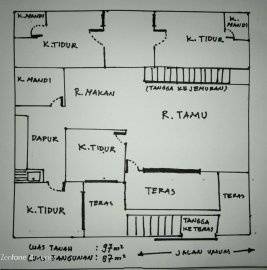 K.MANDI
K.MANDI
K.TIDUR
K.TIDUR
K.MANDI
R.MAKAN
(TANGGA KEJEMURAN)
R.TAMU
DAPUR
K.TIDUR
TERAS
TERAS
K.TIDUR
TERAS
TANGGA
KETERAS
LUAS TANAH : 97 m²
LUAS BANGUNAN : 87 m²
JALAN UMUM
Zenfone